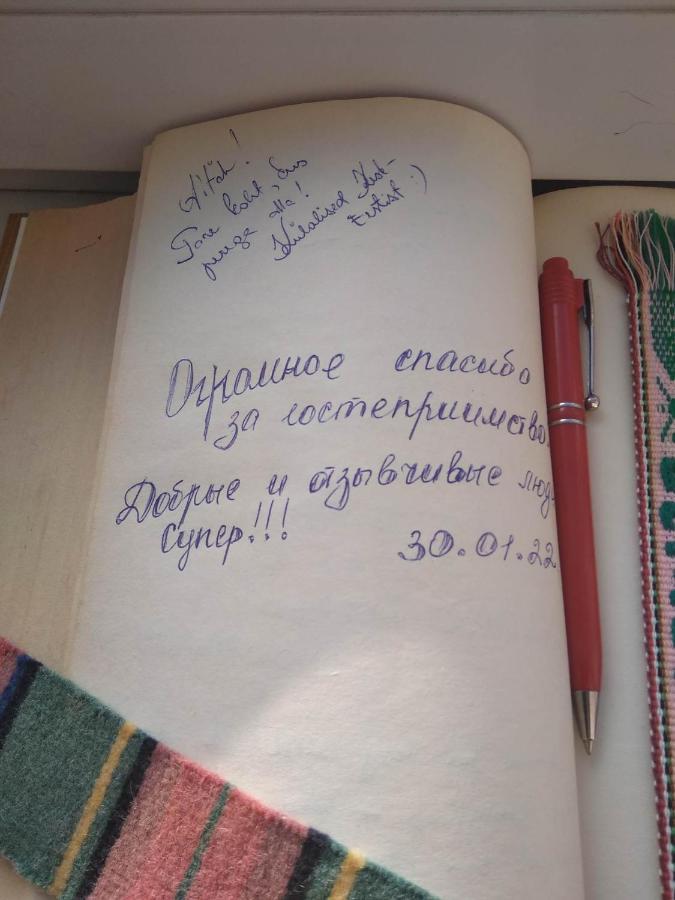 Aitäh!
Tore koht, suus
Külalised Kesk-
Eestist :)
Огромное спасибо
за гостеприимство.
Добрые и отзывчивые люд
супер!!!
30.01.22